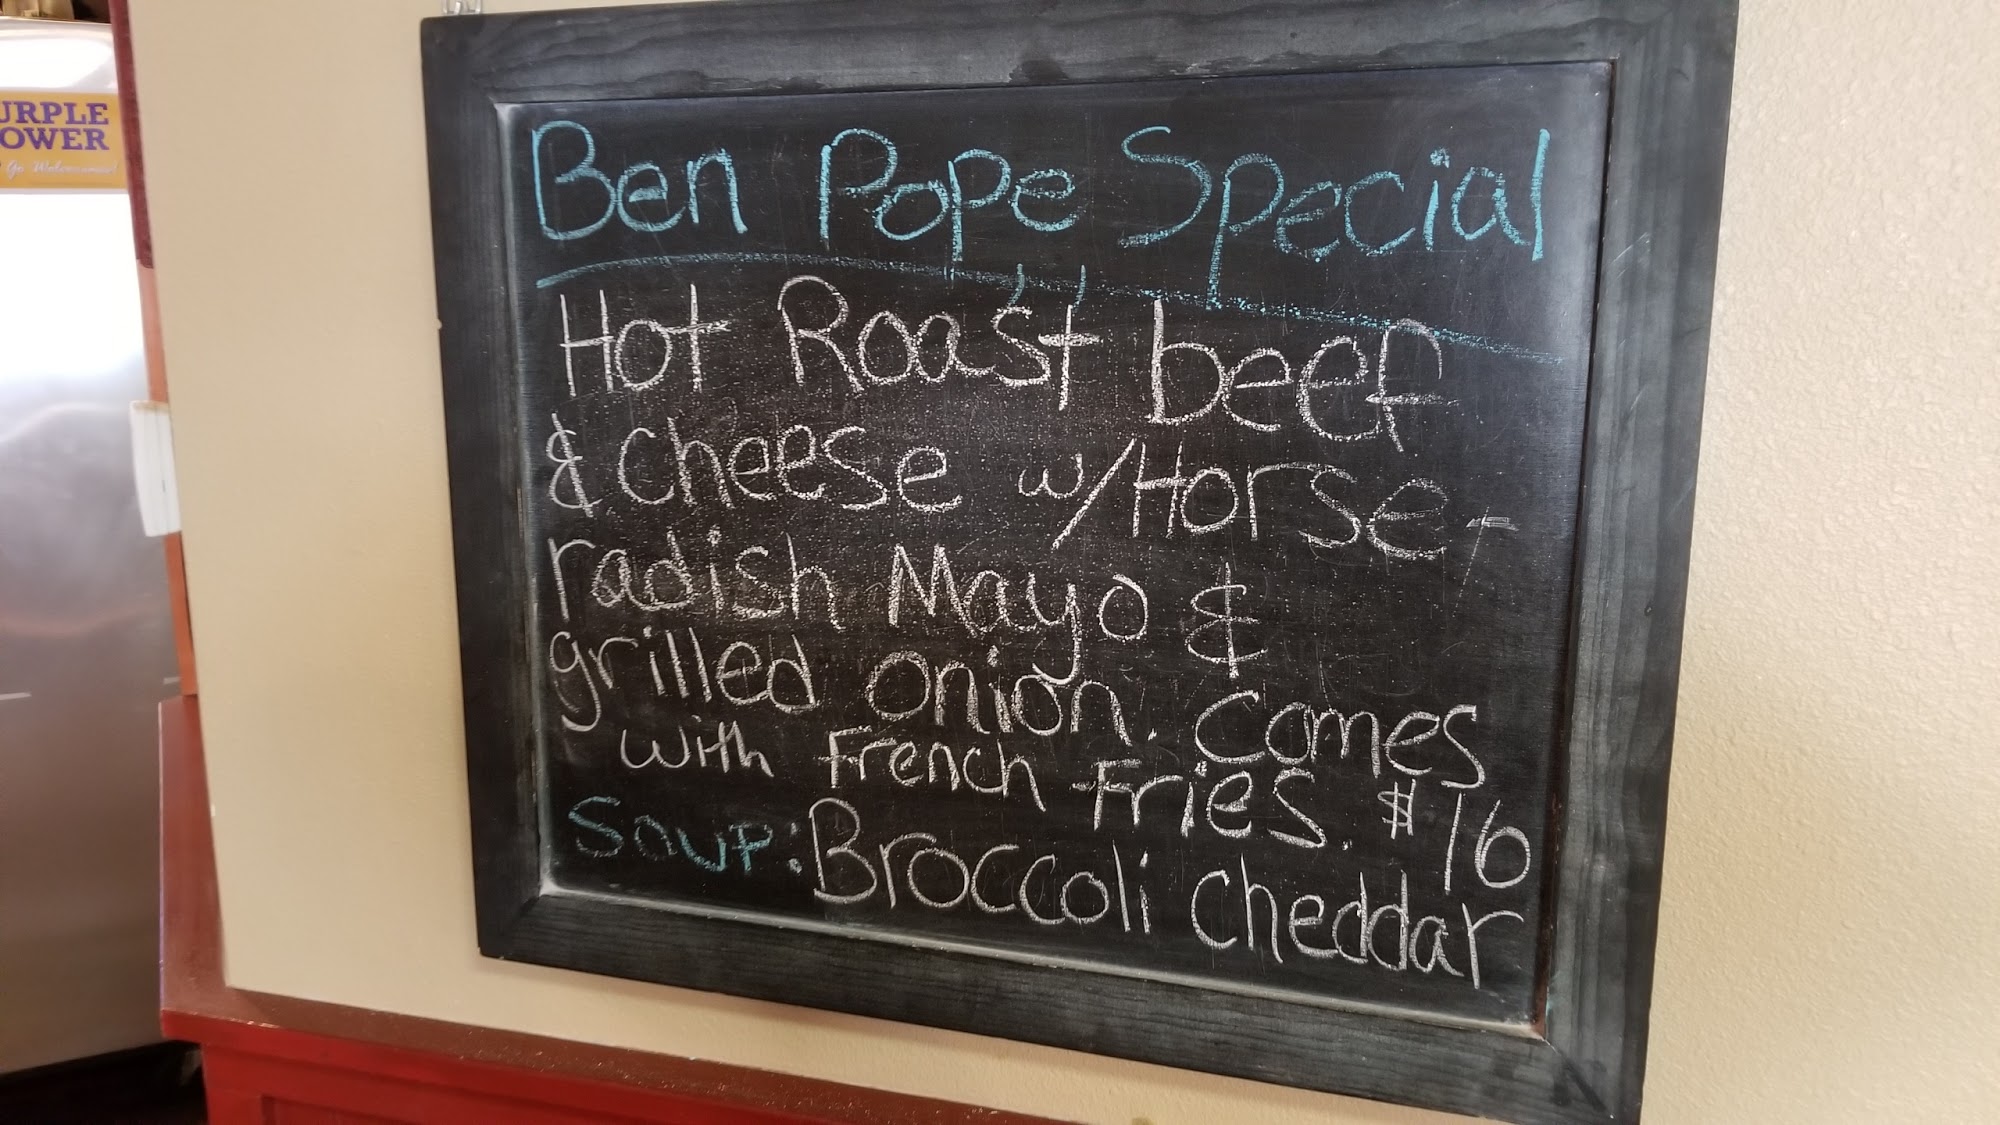 URPLE
OWER
Go
Ben Pope Special
Hot Roast beef
& cheese w/Horse-
radish Mayo &
grilled onion. comes
with French Fries. $16
Soup: Broccoli cheddar